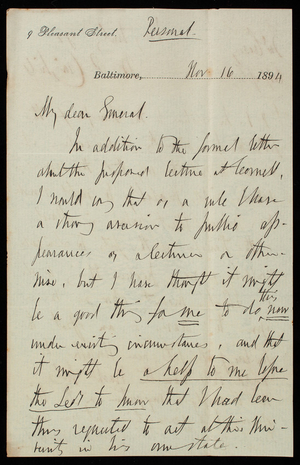 9 Pleasant Street.
Personal.
Baltimore, Nov 16 1894
My dear General.
In addition to the formal letter
about the proposed lecture at Cornell,
I would say that as a rule I have
a strong aversion to public ap-
pearances as a lecturer or other-
wise, but I have thought it might
be a good thing for me to do this now
under existing circumstances, and that
it might be a help to me before
the Legr to know that I had been
thus requested to act at this
in his own state.